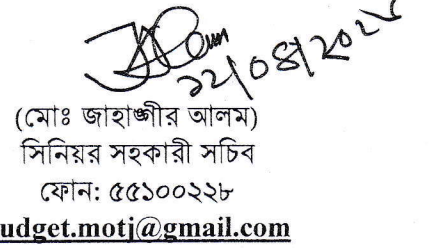 ১২/০৪/২০২
(মোঃ জাহাঙ্গীর আলম)
সিনিয়র সহকারী সচিব
ফোন: ৫৫১০০২২৮
udget.motj@gmail.com